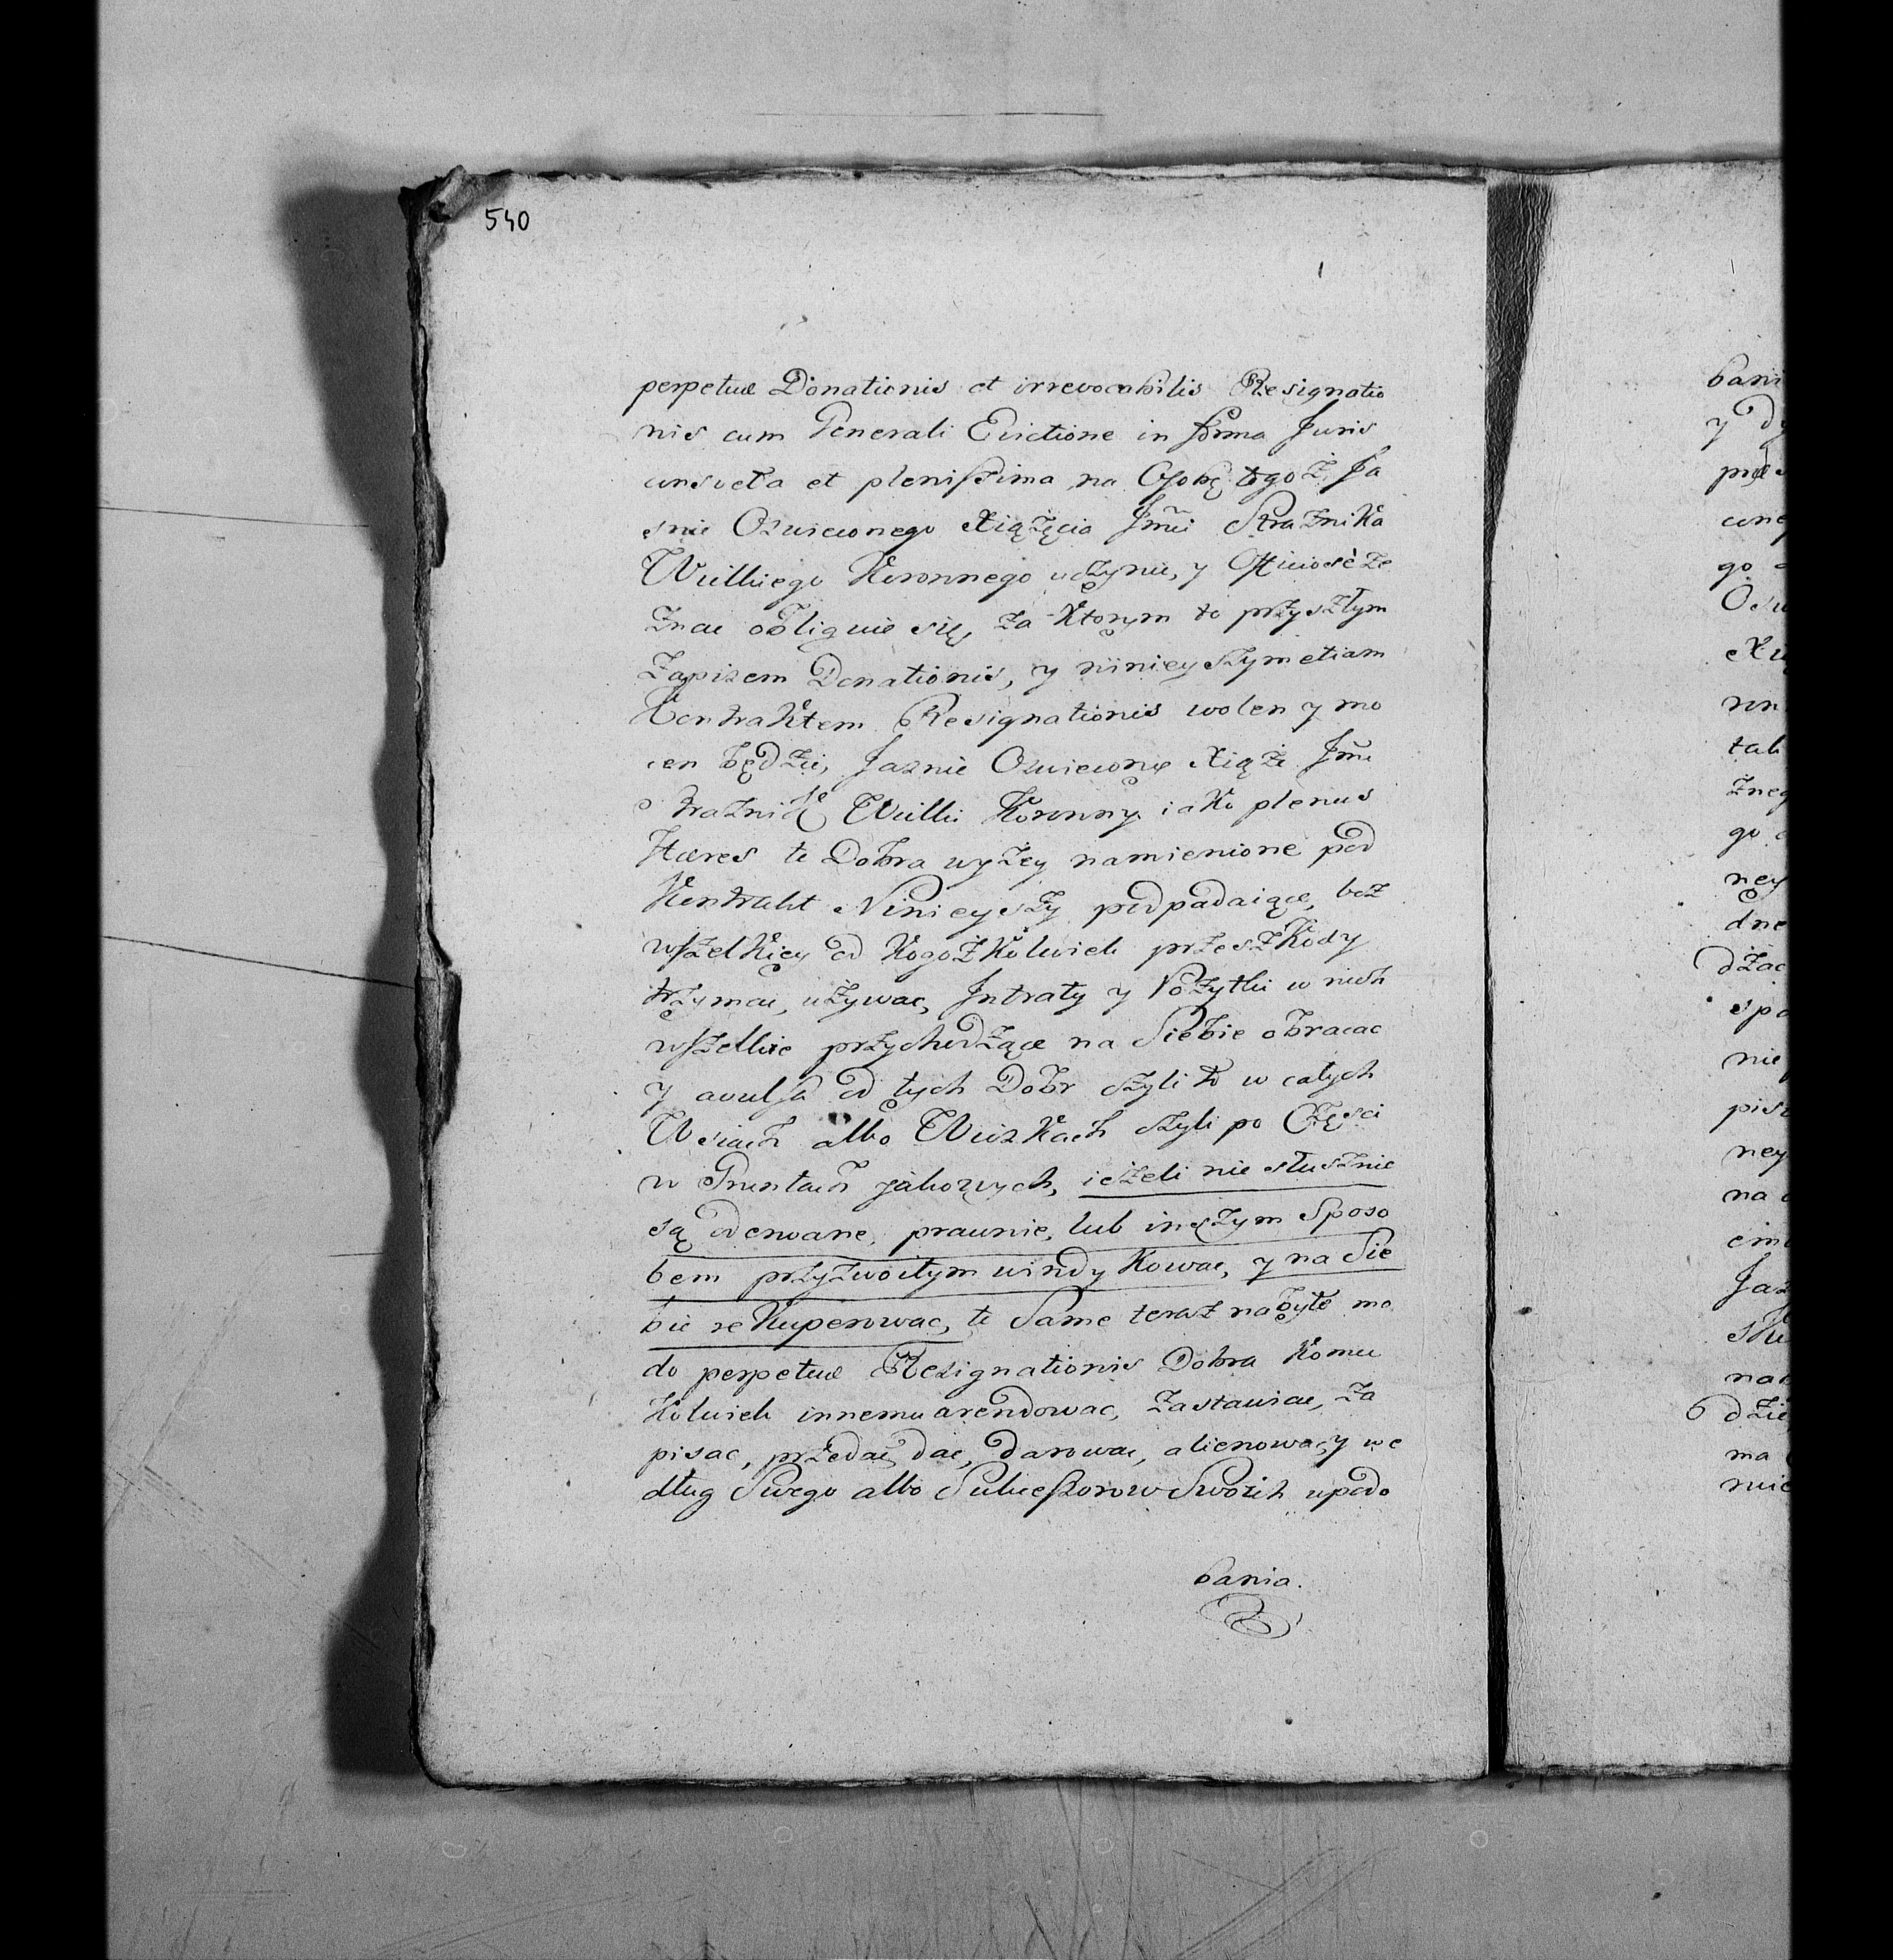 540
perpetuæ Donationis et irrevocabilis Resignatio
nis cum Generali Evictione in forma Juris
consveta et plenissima na Osobę tegoż Ja
snie Oswieconego Xiążęcia Jmći Straznika
Wielkiego Koronnego uczynić, y
Znac obliguie się, za Ktorym to przyszłym
Zapisem Donationis, y ninieyszym etiam
Kontraktem Resignationis wolen y mo
cen będzie, Jasnie Oswiecony Xiąże Jmć
Straznik Wielki Koronny iako plenus
Hæres te Dobra wyżey namienione pod
Kontrakt Ninieyszy podpadaiące, bez
wszelkiey od Kogożkolwiek przeszkody
trzymac, używac, Intraty y Pożytki w nich
wszelkie przychodzące na Siebie obracac
y avulsa od tych Dobr czyli to w całych
Wsiach albo Wioskach czyli po Części
w Gruntach jakowych, ieżeli nie słusznie
są oderwane, prawnie, lub inszym Sposo
bem przyzwoitym windykowac, y na Sie
bie rekuperowac, te Same teraz nabyte mo
do perpetuæ Resignationis Dobra Komu
Kolwiek innemu arendowac, Zastawiac, Za
pisac, przedać, dac, darowac, alienowac, y we
dług Swego albo Sukcessorow Swoich upodo
bania.
bani
y dy
go
tab
żneg
go
ney
dne
dzac
spo
nie
pis
ney
na
Jaz
nab
dzie
ma